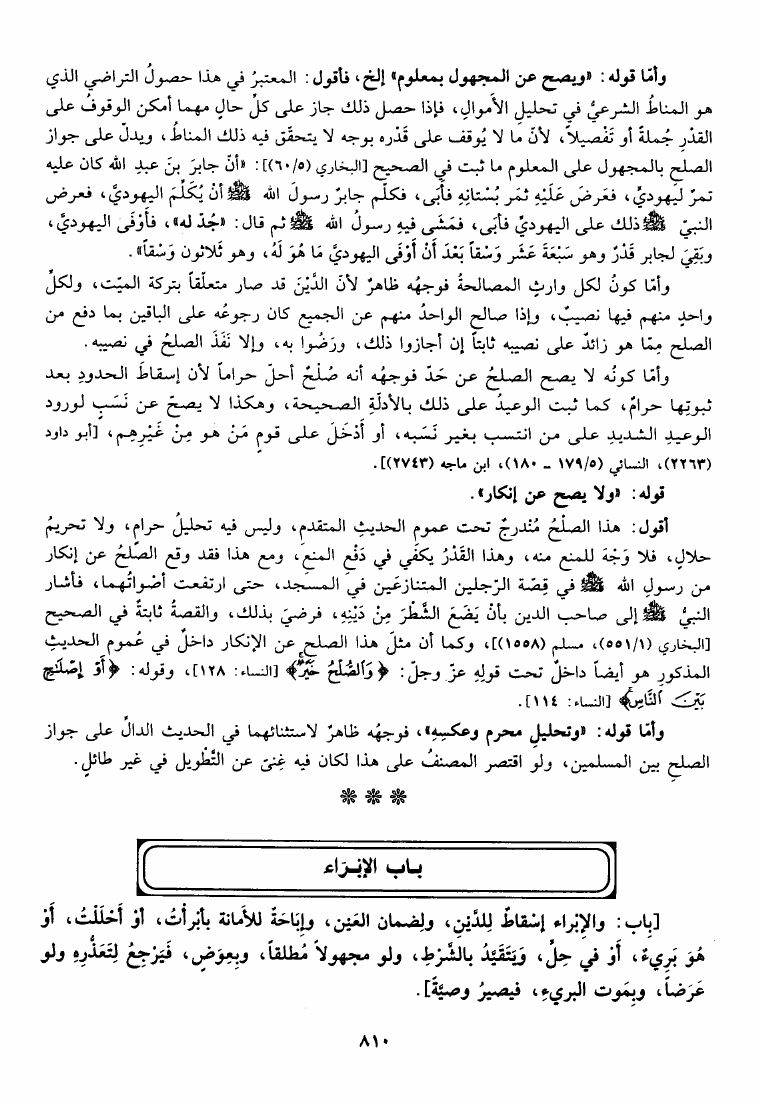 وأمّا قوله: «ويصح عن المجهول بمعلوم» إلخ، فأقول: المعتبرُ في هذا حصولُ التراضي الذي
هو المناطُ الشرعيُّ في تحليلِ الأموالِ، فإذا حصل ذلك جاز على كلِّ حالٍ مهما أمكن الوقوفُ على
القدْرِ جُملةً أو تَفْصيلاً، لأنّ ما لا يُوقف على قَدْره بوجه لا يتحقّق فيه ذلك المناطُ، ويدلّ على جواز
الصلح بالمجهول على المعلوم ما ثبت في الصحيح [البخاري (٦٠/٥)]: «أنّ جابرَ بنَ عبدِ الله كان عليه
تمرٌ ليَهوديٍّ، فعَرضَ عَلَيْهِ ثمَر بُسْتانِهِ فأَبَى، فكلّم جابرٌ رسولَ الله ﷺ أنْ يُكَلِّمَ اليهوديَّ، فعرض
النبيّ ﷺ ذلك على اليهوديِّ فأبَى، فمَشَى فيهِ رسولُ الله ﷺ ثم قال: «جُدّ له»، فأَوْفَى اليهوديَّ،
وبَقِيَ لجابر قَدْرُ وهو سَبْعَةَ عَشَر وَسْقاً بَعْدَ أَنْ أَوْفَى اليهوديَّ مَا هُوَ لَهُ، وهو ثَلاثون وَسْقاً».
وأمّا كونُ لكل وارثٍ المصالحةُ فوجهُه ظاهرٌ لأنّ الدَّيْنَ قد صار متعلّقاً بتركة الميّت، ولكلِّ
واحدٍ منهم فيها نصيبٌ، وإذا صالح الواحدُ منهم عن الجميع كان رجوعُه على الباقين بما دفع من
الصلح مِمّا هو زائدٌ على نصيبه ثابتاً إن أجازوا ذلك، ورَضُوا به، وإلا نَفَذَ الصلحُ في نصيبه.
وأمّا كونُه لا يصح الصلحُ عن حَدّ فوجهُه أنه صُلْحٌ أحلّ حراماً لأن إسقاطَ الحدودِ بعد
ثبوتِها حرامٌ، كما ثبت الوعيدُ على ذلك بالأدلّةِ الصحيحة، وهكذا لا يصحّ عن نَسَبٍ لورود
الوعيدِ الشديدِ على من انتسب بغير نَسَبه، أو أدْخَلَ على قومٍ مَنْ هو مِنْ غَيْرِهِم، [أبو داود
(٢٢٦٣)، النسائي (١٧٩/٥ ــ ١٨٠)، ابن ماجه (٢٧٤٣)].
قوله: «ولا يصح عن إنكار».
أقول: هذا الصلْحُ مُنْدرجٌ تحت عمومِ الحديثِ المتقدمِ، وليس فيه تحليلُ حرامٍ، ولا تحريمُ
حلالٍ، فلا وَجْهَ للمنع منه، وهذا القَدْرُ يكفي في دَفْعِ المنعِ، ومع هذا فقد وقع الصّلحُ عن إنكار
من رسولِ الله ﷺ في قِصّة الرّجلين المتنازعَين في المسجد، حتى ارتفعت أصْواتُهما، فأشار
النبيُّ ﷺ إلى صاحب الدين بأنْ يَضَعَ الشّطْرَ مِنْ دَيْنِهِ، فرضيَ بذلك، والقصةُ ثابتةٌ في الصحيح
[البخاري (٥٥١/١)، مسلم (١٥٥٨)]، وكما أن مثلَ هذا الصلح عن الإنكار داخلٌ في عُموم الحديثِ
المذكورِ هو أيضاً داخلٌ تحت قولِهِ عزّ وجلّ: ﴿وَالصُّلْحُ خَيْرٌ﴾ [النساء: ١٢٨]، وقوله: ﴿أَوْ إِصْلَاحٍ
بَيْنَ النَّاسِ﴾ [النساء: ١١٤].
وأمّا قوله: «وتحليلِ محرم وعكسِهِ»، فوجهُه ظاهرٌ لاستثنائهما في الحديث الدالِّ على جواز
الصلحِ بين المسلمين، ولو اقتصر المصنفُ على هذا لكان فيه غِنىً عن التَّطْويل في غير طائلٍ.
باب الإبْرَاء
[باب: والإبْراء إسْقاطٌ لِلدَّيْنِ، ولضمان العَيْن، وإبَاحَةٌ للأمانة بأبْرأتُ، أوْ أَحْلَلْتُ، أوْ
هُوَ بَرِيءٌ، أوْ في حِلٍّ، وَيَتَقَيَّدُ بالشَّرْطِ، ولو مجهولاً مُطلقاً، وبِعِوَضٍ، فَيَرْجِعُ لِتَعَذُّرِهِ ولو
عَرَضاً، وبِمَوت البريءِ، فيصيرُ وصيَّةً].
٨١٠